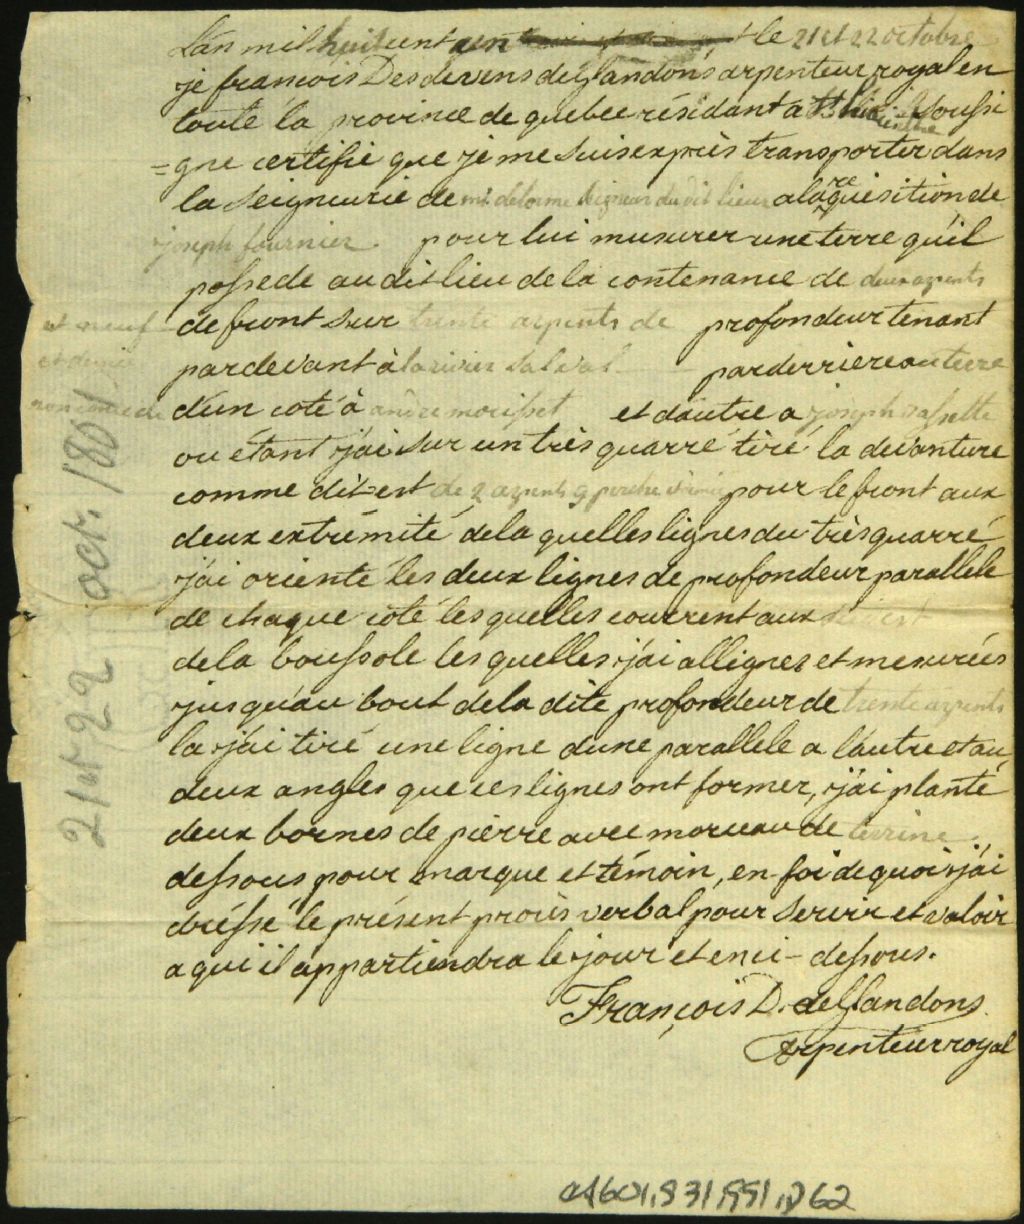 L'an mil huit cent un et le 21 et 22 octobre
je francois Desdevens de Glandons arpenteur royal en
toute la province de quebec résidant a soussi
=gne certifie que je me suis exprès transporter dans
la seigneurie de mr delorme seigneur du dit lieu a la requisition de
joseph fournier pour lui musurer une terre qu'il
possede au dit lieu de la contenance de deux arpents
et neuf
de front sur trente arpents de profondeur tenant
et demie
par devant à la rivier Salval par derriere au terre
non concede
d'un coté à andre morisset et d'autre a joseph
ou étant j'ai sur un très quarré tiré la devanture
comme dit=est de 2 arpents 9 perche et demie pour le front aux
deux extrémité de la quelles lignes du très quarré
j'ai oriente les deux lignes de profondeur parallele
de chaque coté les quelles courrent aux
de la boussole les quelles j'ai allignes et mesurées
jusqu'au bout de la dite profondeur de trente arpents
la j'ai tiré une ligne d'une parallele a l'autre et au
deux angles que ces lignes ont former, j'ai planté
deux bornes de pierre avec morceau de terrine
dessous pour marque et témoin, en foi de quoi j'ai
dréssé le présent procès verbal pour servir et valoir
a qui il appartiendra le jour et en ci-dessous.
François D. de Glandons
Arpenteur royal
21 et 22 oct. 1801
A601,S31,SS1,D62